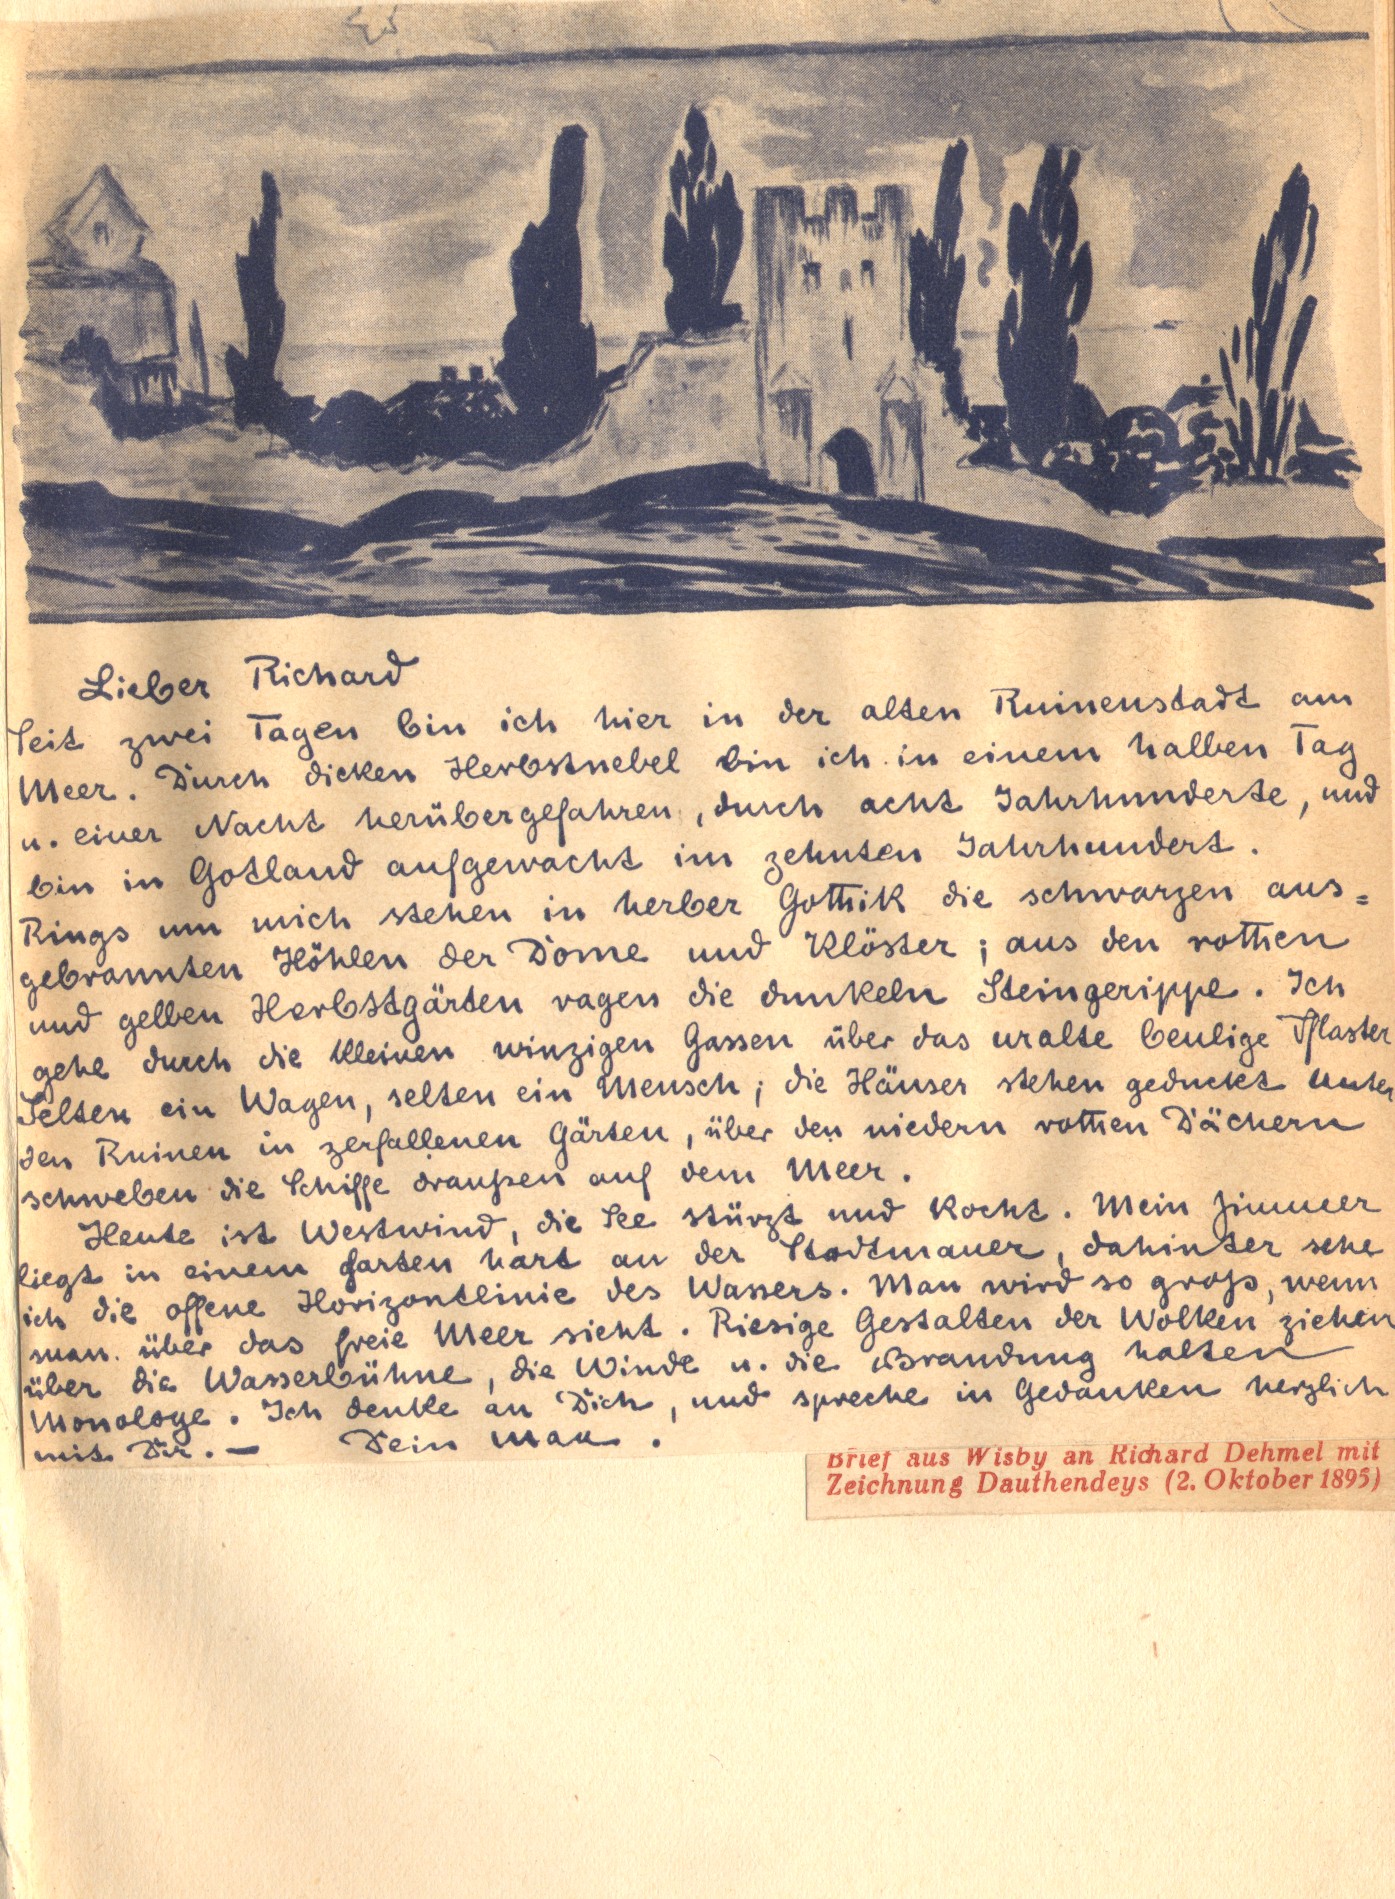 Lieber Richard
Seit zwei Tagen bin ich hier in der alten Ruinenstadt am
Meer. Durch dicken Herbstnebel bin ich in einem halben Tag
u. einer Nacht herübergefahren, durch acht Jahrhunderte, und
bin in Gotland aufgewacht im zehnten Jahrhundert.
Rings um mich stehen in herber Gothik die schwarzen aus=
gebrannten Höhlen der Dome und Klöster; aus den rothen
und gelben Herbstgärten ragen die dunkeln Steingerippe. Ich
gehe durch die kleinen winzigen Gassen über das uralte beulige Pflaster
Selten ein Wagen, selten ein Mensch; die Häuser stehen geduckt unter
den Ruinen in zerfallenen Gärten, über den niedern rothen Dächern
schweben die Schiffe draußen auf dem Meer.
Heute ist Westwind, die See stürzt und kocht. Mein Zimmer
liegt in einem Garten hart an der Stadtmauer, dahinter sehe
ich die offene Horizontlinie des Wassers. Man wird so groß, wenn
man über das freie Meer sieht. Riesige Gestalten der Wolken ziehen
über die Wasserbühne, die Winde u. die Brandung halten
Monologe. Ich denke an Dich, und spreche in Gedanken herzlich
mit Dir. — Dein Max.
Brief aus Wisby an Richard Dehmel mit
Zeichnung Dauthendeys (2. Oktober 1895)